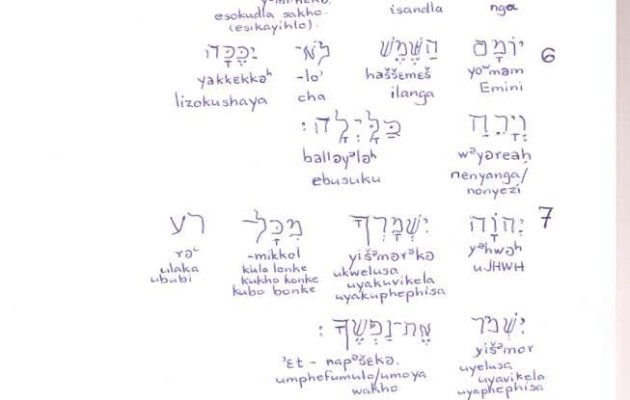 nga
isandla
esokudla sakho.
(esikayihlo).
6
יוֹמָם
yoʷməm
Emini
הַשֶּׁמֶשׁ
haššemeš
ilanga
לֹא־
-loʾ
cha
יַכֶּכָּה
yakkekkəʰ
lizokushaya
וְיָרֵחַ
wᵊyəreaḥ
nenyanga/
nonyezi
בַּלָּיְלָה׃
balləyᵊləʰ
ebusuku
7
יְהוָֹה
yᵊhwəh
uJHWH
יִשְׁמָרְךָ
yišᵊmərᵊkə
ukwelusa
uyakuvikela
uyakuphephisa
מִכָּל־
-mikkol
kulo lonke
kukho konke
kubo bonke
רָע
rəʿ
ulaka
ububi
יִשְׁמֹר
yišᵊmor
uyelusa
uyavikela
uyaphephisa
אֶת־נַפְשֶׁךָ׃
ʾɛt - napᵊšɛkə.
umphefumulo/umoya
wakho